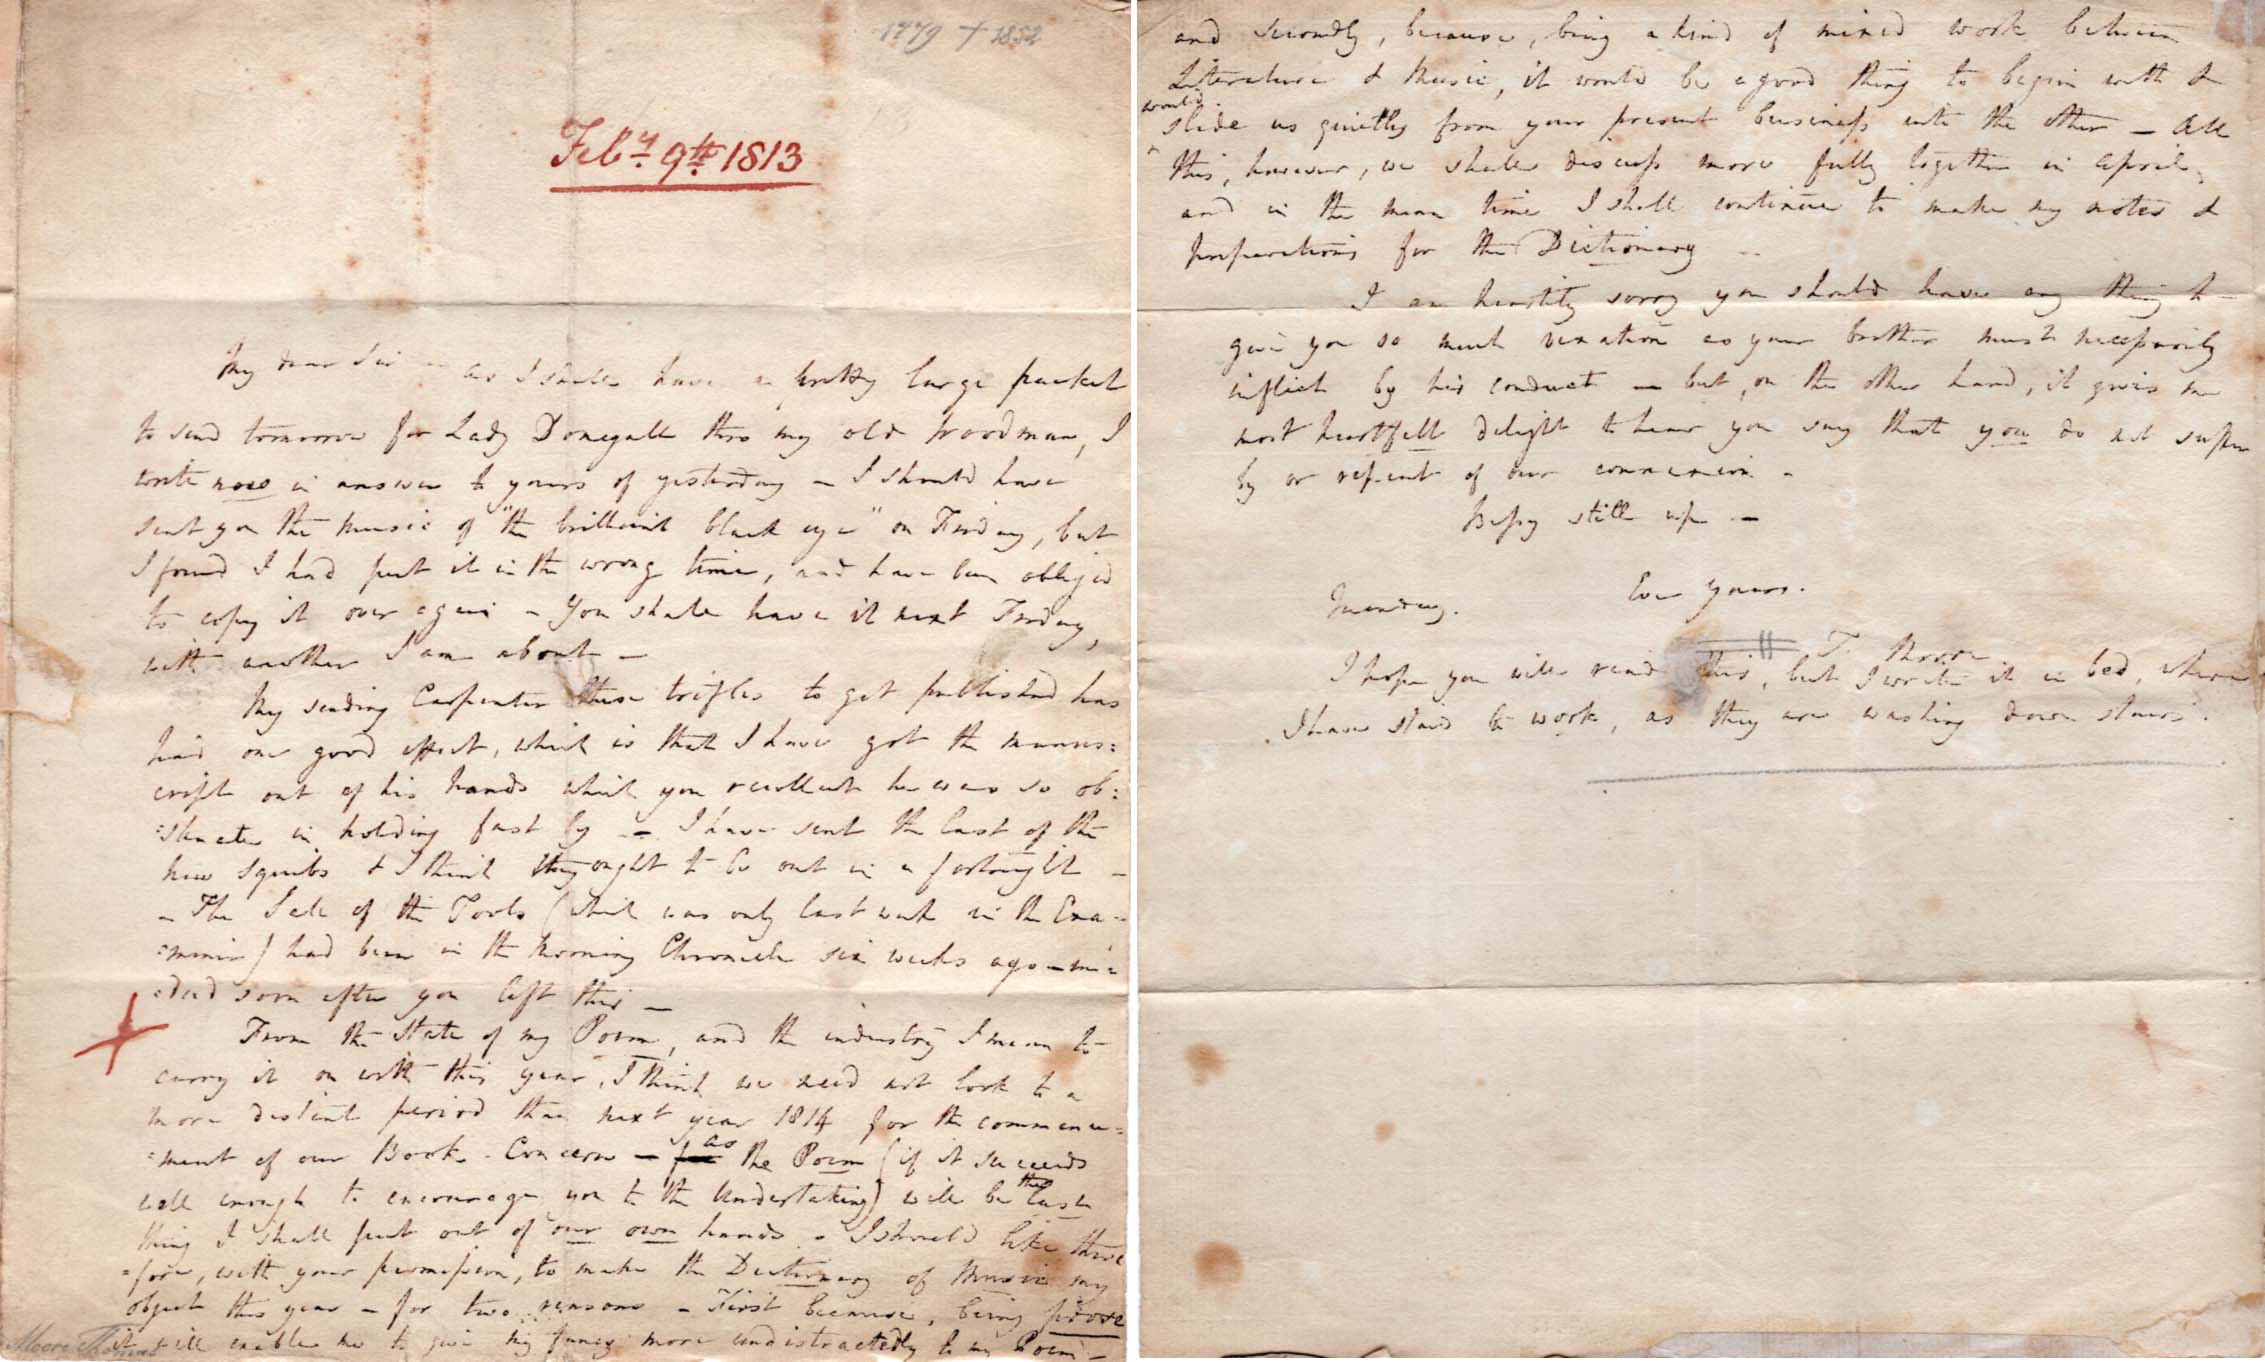 1779 + 1852
Feby. 9th. 1813
My dear Sir — as I shall have a pretty large packet
to send tomorrow for Lady Donegall thro my old Woodman, I
write now in answer to yours of yesterday — I should have
sent you the music of "the brilliant black eye" on Friday, but
I found I had put it in the wrong time, and have been obliged
to copy it over again — You shall have it next Friday,
with another I am about —
My sending Carpenter these trifles to get published has
had one good effect, which is that I have got the manus=
cript out of his hands which you recollect he was so ob:
:stinate in holding fast by — I have sent the last of the
new Squibs & I think they ought to be out in a fortnight —
— The Sale of the Tools (which was only last week in the Exa-
:miner) had been in the Morning Chronicle six weeks ago — in=
=deed soon after you left this —
From the state of my Poem, and the industry I mean to
carry it on with this year, I think we need not look to a
more distant period than next year 1814 for the commence=
:ment of our Book-Concern — as the Poem (if it succeeds
well enough to encourage you to the Undertaking) will be the last
thing I shall put out of our own hands. — I should like there
=fore, with your permission, to make the Dictionary of Music my
object this year — for two reasons — First because, being prose
it will enable me to give my fancy more undistractedly to my Poem —
Moore Thomas
and secondly, because, being a kind of mixed work between
Literature & Music, it would be a good thing to begin with &
would
slide us quietly from your present business into the other — All
this, however, we shall discuss more fully together in April,
and in the mean time I shall continue to make my notes &
preparations for the Dictionary —
I am heartily sorry you should have any thing to
give you so much vexation as your brother must necessarily
inflict by his conduct — but, on the other hand, it gives me
most heartfelt delight to hear you say that you do not suffer
by or repent of our connexion —
Bessy still up —
Ever yours.
Monday.
T. Moore
I hope you will read this, but I write it in bed, where
I have staid to work, as they are washing down stairs.